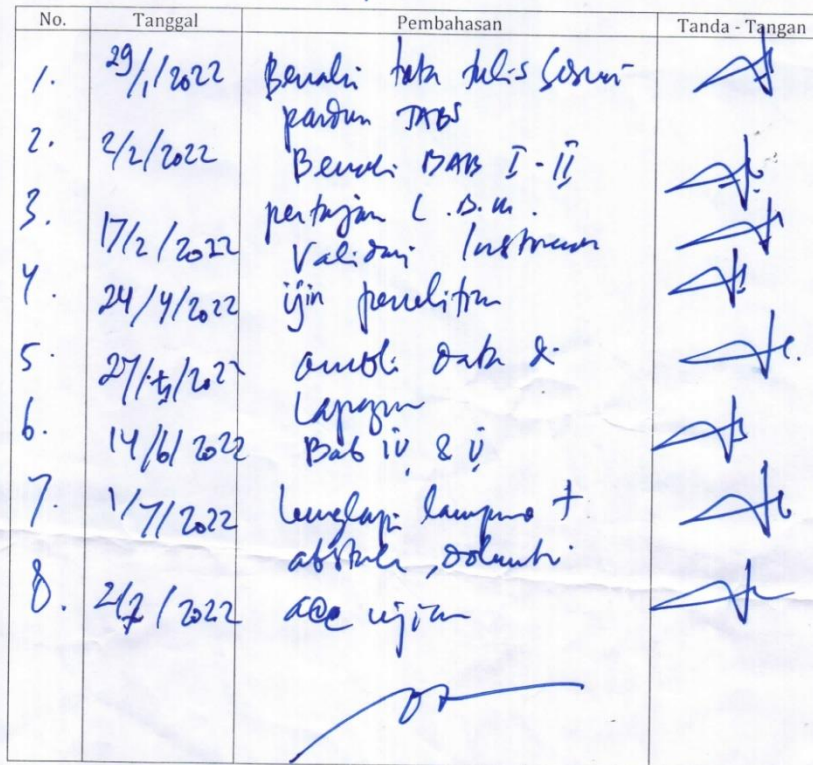 No. Tanggal Pembahasan Tanda - Tangan
1. 29/1/2022 Benahi tata tulis sesuai
panduan
2. 2/2/2022 Benahi BAB I - II
pertajam L.B.M.
3. 17/2/2022 Validasi Instrumen
4. 24/4/2022 ijin penelitian
5. ambil data di
Lapangan
6. 14/6/2022 Bab IV & V
7. 1/7/2022 lengkapi lampiran +
abstrak,
8. 2/7/2022 acc ujian